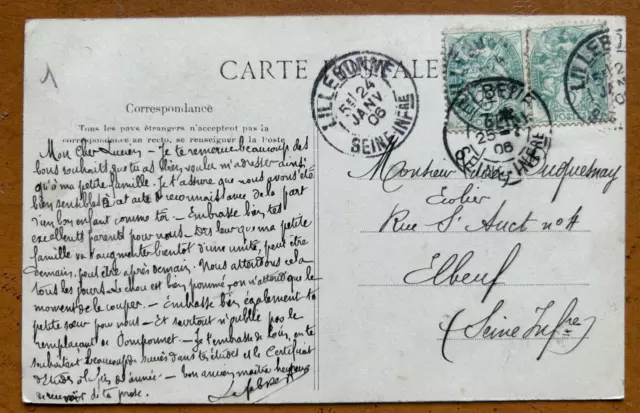 CARTE POSTALE
LILLEBONNE
5E / 24
JANV
06
SEINE INFRE
ELBEUF
25
06
SEINE INFRE
LILLEBONNE
Correspondance
Tous les pays étrangers n'acceptent pas la
correspondance au recto, se renseigner à la Poste
Mon Cher Lucien – Je te remercie beaucoup des
bons souhaits que tu as bien voulu m'adresser ainsi
qu'à ma petite famille. Je t'assure que nous avons été
bien sensibles à cet acte de reconnaissance de la part
d'un bon enfant comme toi – Embrasse bien tes
excellents parents pour nous – Dis leur que ma petite
famille va s'augmenter bientôt d'une unité, peut être
demain, peut être après demain. Nous attendons cela
tous les jours. Le chou est bien pommé, on n'attend que le
moment de le couper. – Embrasse bien également ta
petite sœur pour nous – Et surtout n'oublie pas le
remplaçant de Pomponnet – Je t'embrasse de loin, en te
souhaitant beaucoup de succès dans tes études et le Certificat
d'Etudes à la fin de l'année – Ton ancien maître heureux
de recevoir de ta prose.
Monsieur Lucien Duquesnay
Ecolier
Rue St Auct no 4
Elbeuf
(Seine Infre)